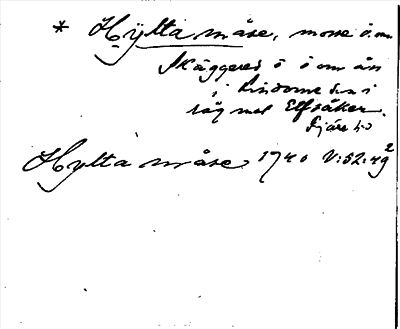 * Hylta måse, mosse ö. om
Skäggered ö ö om ån
i Lindome s:n i
råg med Elfsåker.
Fjäre hd
Hylta måse 1740 V:52:49²